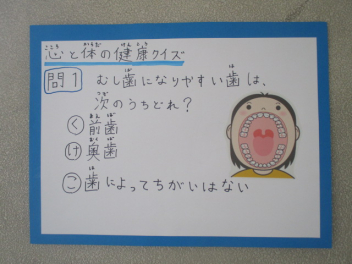 心と体の健康クイズ
問1 むし歯になりやすい歯は、
次のうちどれ?
く 前歯
け 奥歯
こ 歯によってちがいはない